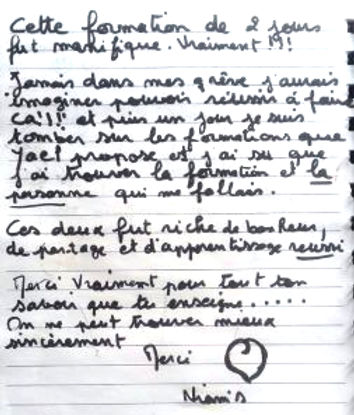 Cette formation de 2 jours
fut manifique. Vraiment !!!
Jamais dans mes rêve j'aurais
imaginer pouvoir réussir à faire
ça!!! et puis un jour je suis
tomber sur les formations que
Jaci propose et j'ai su que
j'ai trouver la formation et la
personne qui me fallais.
Ces deux fut riche de bonheur,
de partage et d'apprentissage reussi
Merci Vraiment pour tout ton
savoir que tu enseigne.....
On ne peut trouver mieux
sincèrement
Merci